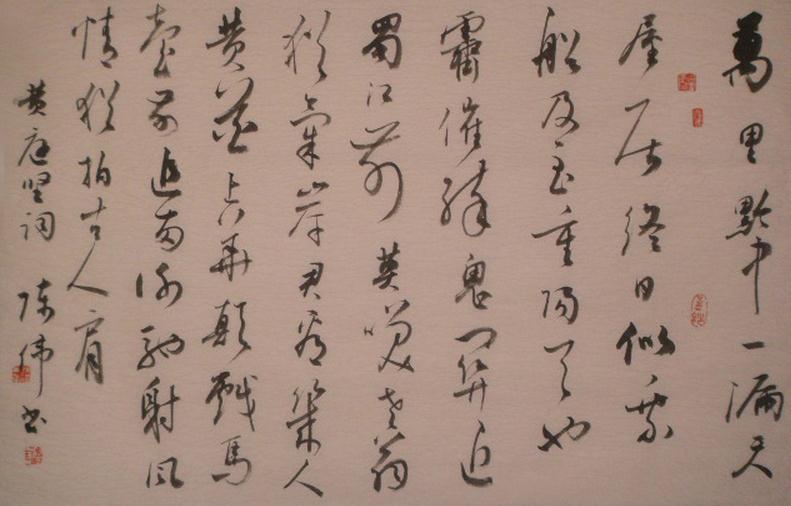 萬里黔中一漏天
屋居終日似乘
船及至重陽天也
霽催醉鬼門關近
蜀江前莫咲老翁
猶氣岸君看幾人
黄菊上華顛戲馬
臺前追兩謝馳射風
情猶拍古人肩
黄庭坚詞 陳偉書